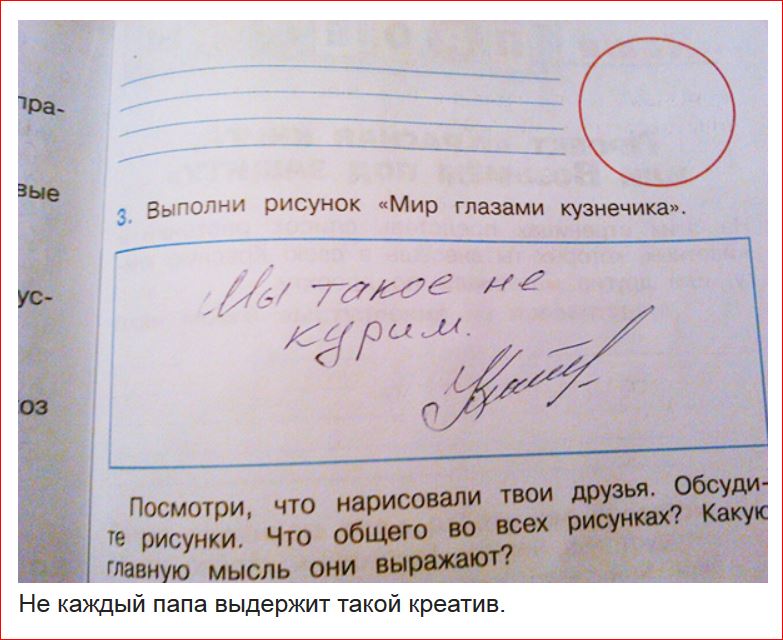 пра-
вые
ус-
оз
3. Выполни рисунок «Мир глазами кузнечика».
Мы такое не
курим.
Посмотри, что нарисовали твои друзья. Обсуди-
те рисунки. Что общего во всех рисунках? Какую
главную мысль они выражают?
Не каждый папа выдержит такой креатив.